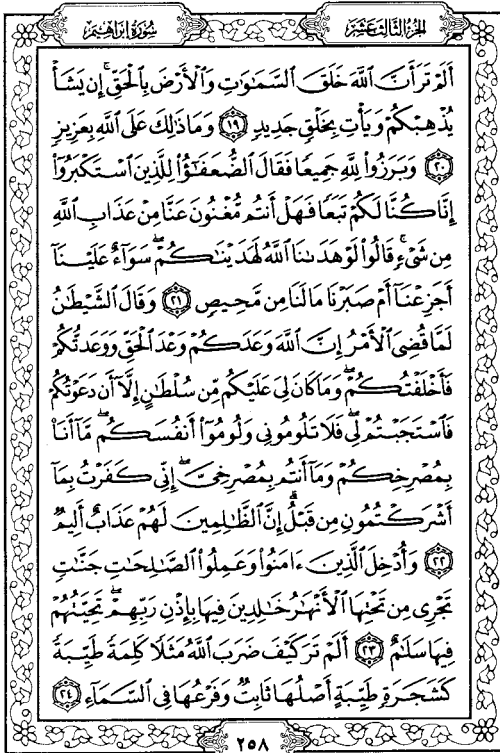 سُورَةُ إِبْرَاهِيمَ
الجُزْءُ الثَّالِثَ عَشَرَ
أَلَمْ تَرَ أَنَّ ٱللَّهَ خَلَقَ ٱلسَّمَٰوَٰتِ وَٱلْأَرْضَ بِٱلْحَقِّ ۚ إِن يَشَأْ
يُذْهِبْكُمْ وَيَأْتِ بِخَلْقٍ جَدِيدٍ ١٩ وَمَا ذَٰلِكَ عَلَى ٱللَّهِ بِعَزِيزٍ
٢٠ وَبَرَزُوا۟ لِلَّهِ جَمِيعًا فَقَالَ ٱلضُّعَفَٰٓؤُا۟ لِلَّذِينَ ٱسْتَكْبَرُوٓا۟
إِنَّا كُنَّا لَكُمْ تَبَعًا فَهَلْ أَنتُم مُّغْنُونَ عَنَّا مِنْ عَذَابِ ٱللَّهِ
مِن شَىْءٍ ۚ قَالُوا۟ لَوْ هَدَىٰنَا ٱللَّهُ لَهَدَيْنَٰكُمْ ۖ سَوَآءٌ عَلَيْنَآ
أَجَزِعْنَآ أَمْ صَبَرْنَا مَا لَنَا مِن مَّحِيصٍ ٢١ وَقَالَ ٱلشَّيْطَٰنُ
لَمَّا قُضِىَ ٱلْأَمْرُ إِنَّ ٱللَّهَ وَعَدَكُمْ وَعْدَ ٱلْحَقِّ وَوَعَدتُّكُمْ
فَأَخْلَفْتُكُمْ ۖ وَمَا كَانَ لِىَ عَلَيْكُم مِّن سُلْطَٰنٍ إِلَّآ أَن دَعَوْتُكُمْ
فَٱسْتَجَبْتُمْ لِى ۖ فَلَا تَلُومُونِى وَلُومُوٓا۟ أَنفُسَكُم ۖ مَّآ أَنَا۠
بِمُصْرِخِكُمْ وَمَآ أَنتُم بِمُصْرِخِىَّ ۖ إِنِّى كَفَرْتُ بِمَآ
أَشْرَكْتُمُونِ مِن قَبْلُ ۗ إِنَّ ٱلظَّٰلِمِينَ لَهُمْ عَذَابٌ أَلِيمٌ
٢٢ وَأُدْخِلَ ٱلَّذِينَ ءَامَنُوا۟ وَعَمِلُوا۟ ٱلصَّٰلِحَٰتِ جَنَّٰتٍ
تَجْرِى مِن تَحْتِهَا ٱلْأَنْهَٰرُ خَٰلِدِينَ فِيهَا بِإِذْنِ رَبِّهِمْ ۖ تَحِيَّتُهُمْ
فِيهَا سَلَٰمٌ ٢٣ أَلَمْ تَرَ كَيْفَ ضَرَبَ ٱللَّهُ مَثَلًا كَلِمَةً طَيِّبَةً
كَشَجَرَةٍ طَيِّبَةٍ أَصْلُهَا ثَابِتٌ وَفَرْعُهَا فِى ٱلسَّمَآءِ ٢٤
٢٥٨